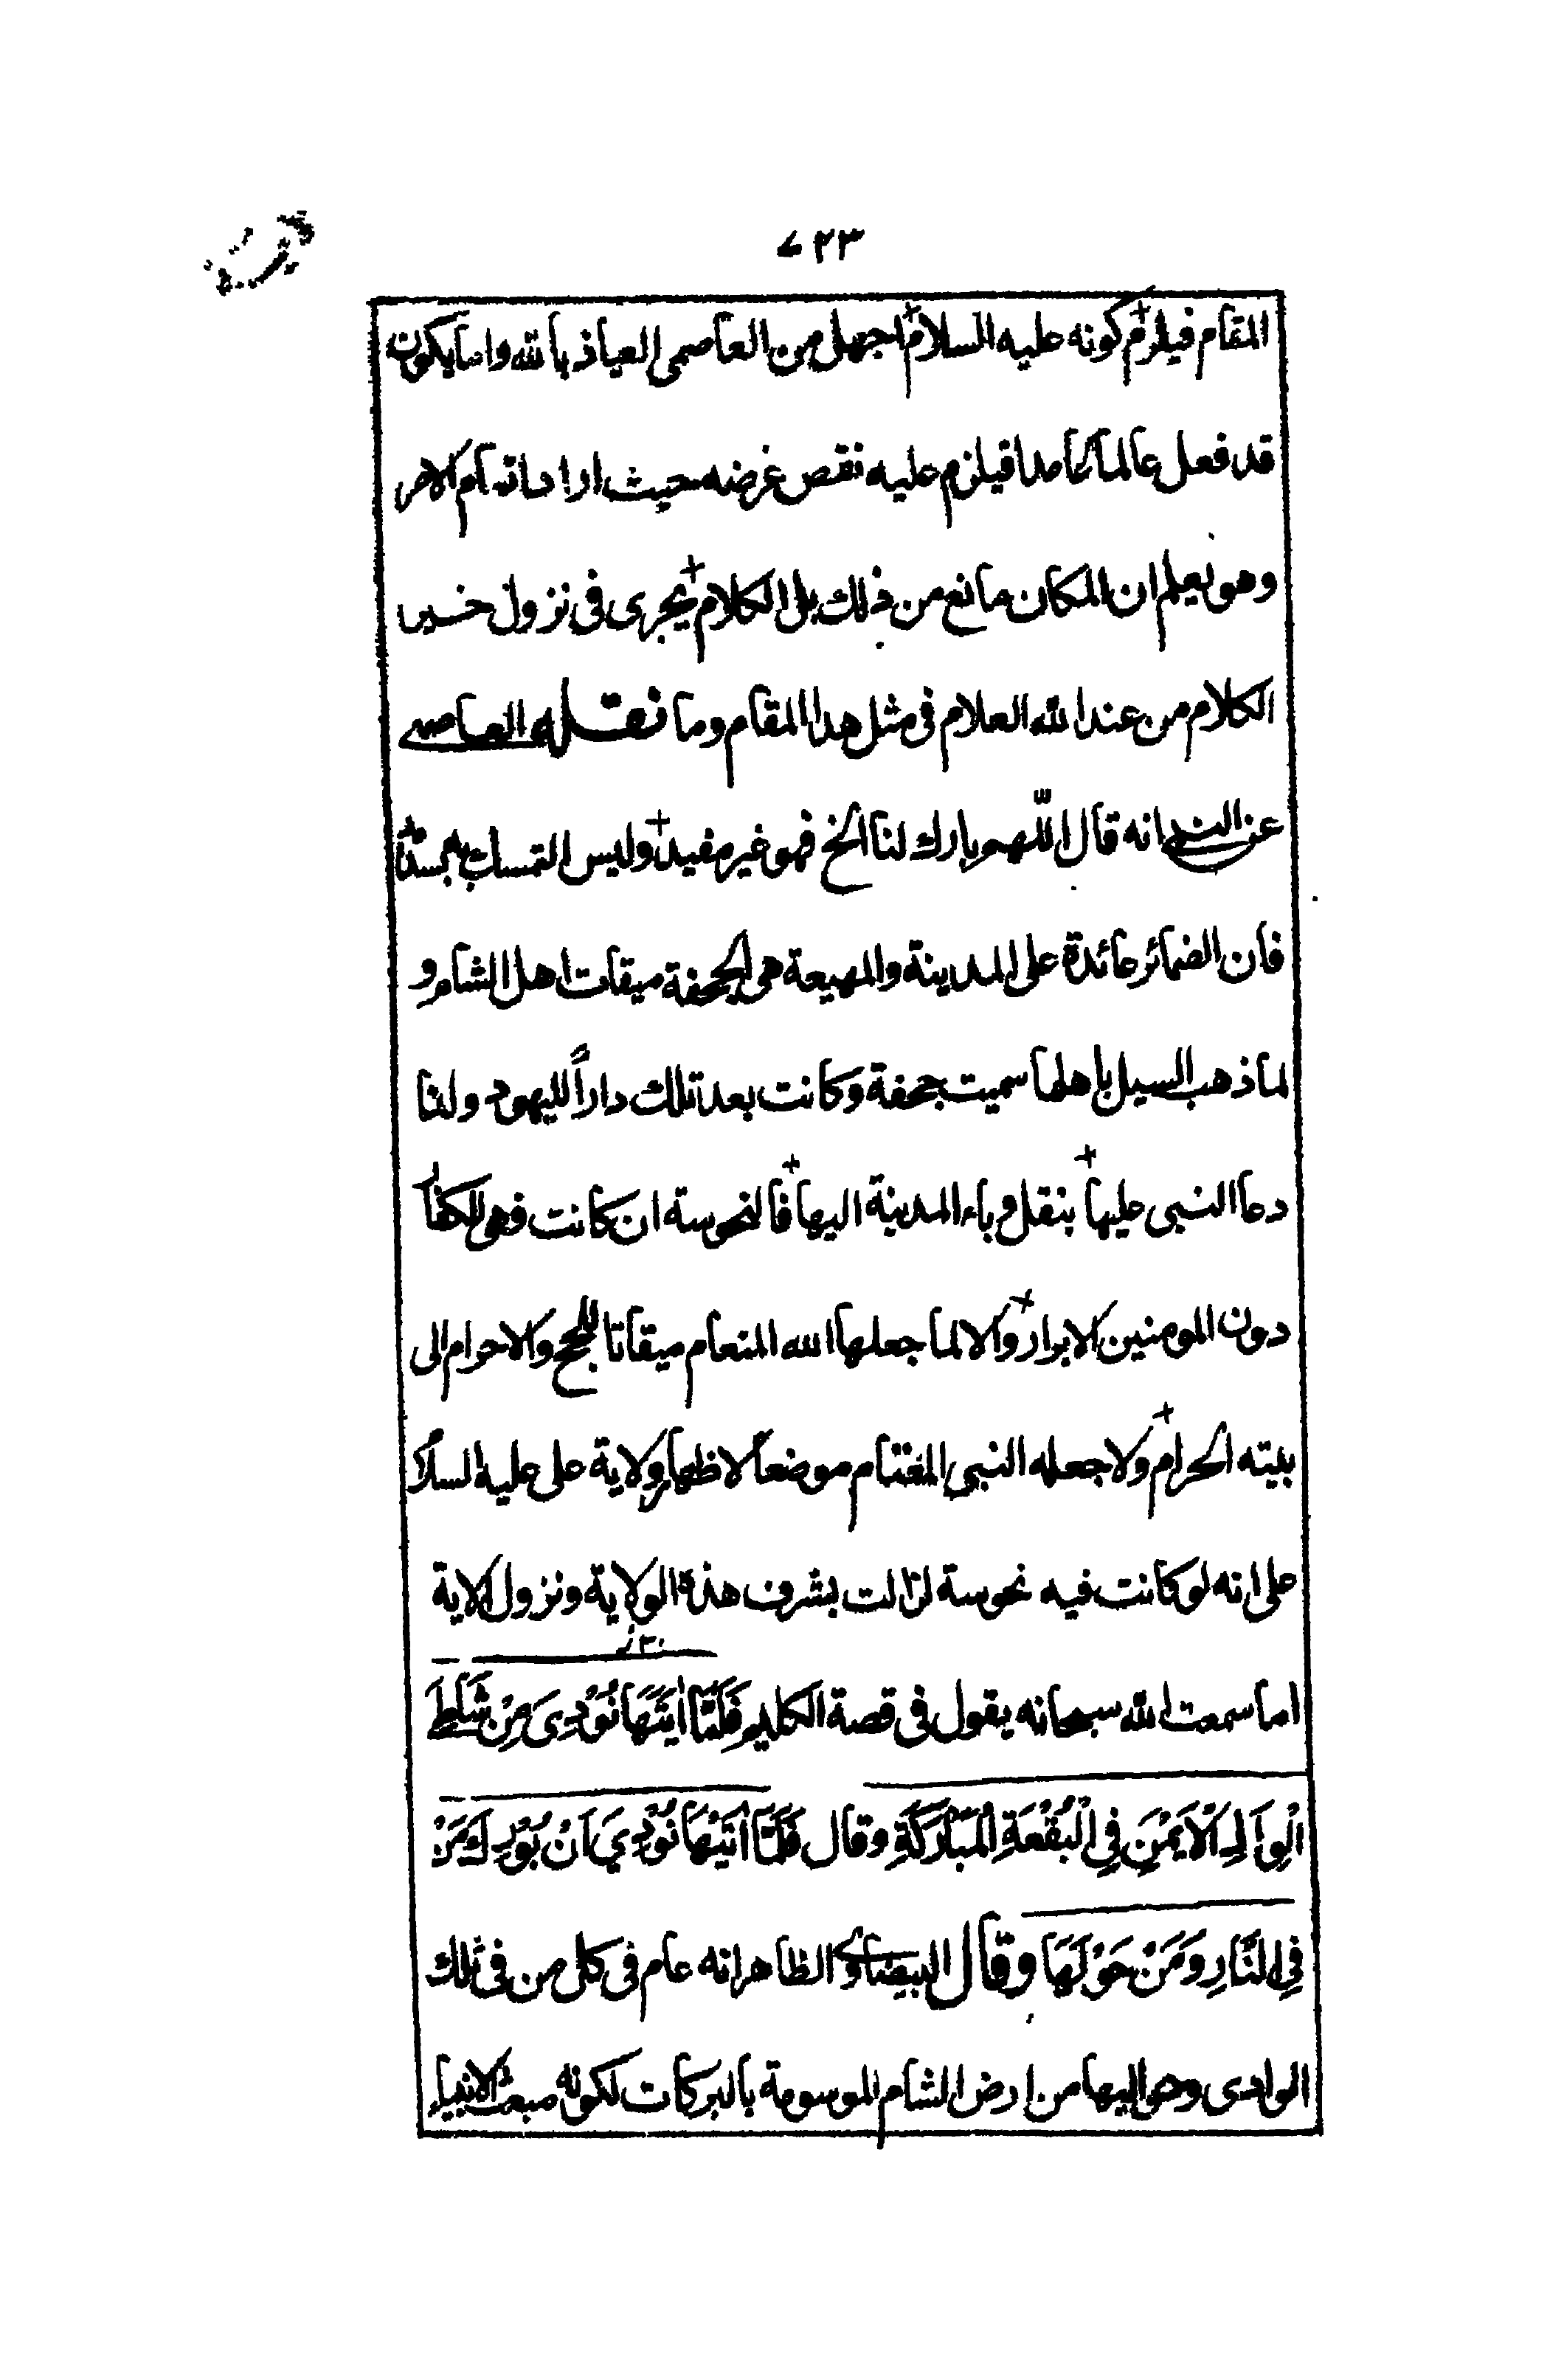 ٧٢٣
المقام فيلزم كونه عليه السلام اجهل من العاصمى العياذ بالله واما يكون
قد فعل عالما كامدا فيلزم عليه نقص غرضه حيث اراد اتمام الامر
وهو يعلم ان المكان مانع من ذلك بل الكلام يجرى فى نزول خير
الكلام من عند الله العلام فى مثل هذا المقام وما نقله العاصمى
عن النبى انه قال اللهم بارك لنا الخ فهو غير مفيد وليس التمسك به بمستد
فان الضمائر عائدة على المدينة والمهيعة هى الجحفة ميقات اهل الشام و
لما ذهب السيل باهلها سميت جحفة وكانت بعد تلك داراً لليهود ولذا
دعا النبى عليها بنقل وباء المدينة اليها فالنحوسة ان كانت فهى للكفار
دون المومنين الابرار والا لما جعلها الله المنعام ميقاتا للحج والاحرام الى
بيته الحرام ولا جعله النبى المغتنام موضعاً لاظهار ولاية على عليه السلام
على انه لو كانت فيه نحوسة لزالت بشرف هذه الولاية ونزول الاية
اما سمعت الله سبحانه يقول فى قصة الكليم فَلَمَّا اَتٰهَا نُوْدِىَ مِنْ شَاطِئِ
الْوَادِ الْاَيْمَنِ فِى الْبُقْعَةِ الْمُبَارَكَةِ وقال فَلَمَّا اَتٰيهَا نُوْدِيَ اَنْ بُوْرِكَ مَنْ
فِى النَّارِ وَمَنْ حَوْلَهَا وقال البيضاوى الظاهر انه عام فى كل من فى تلك
الوادى وحواليها من ارض الشام الموسومة بالبركات لكونه مبعث الانبياء